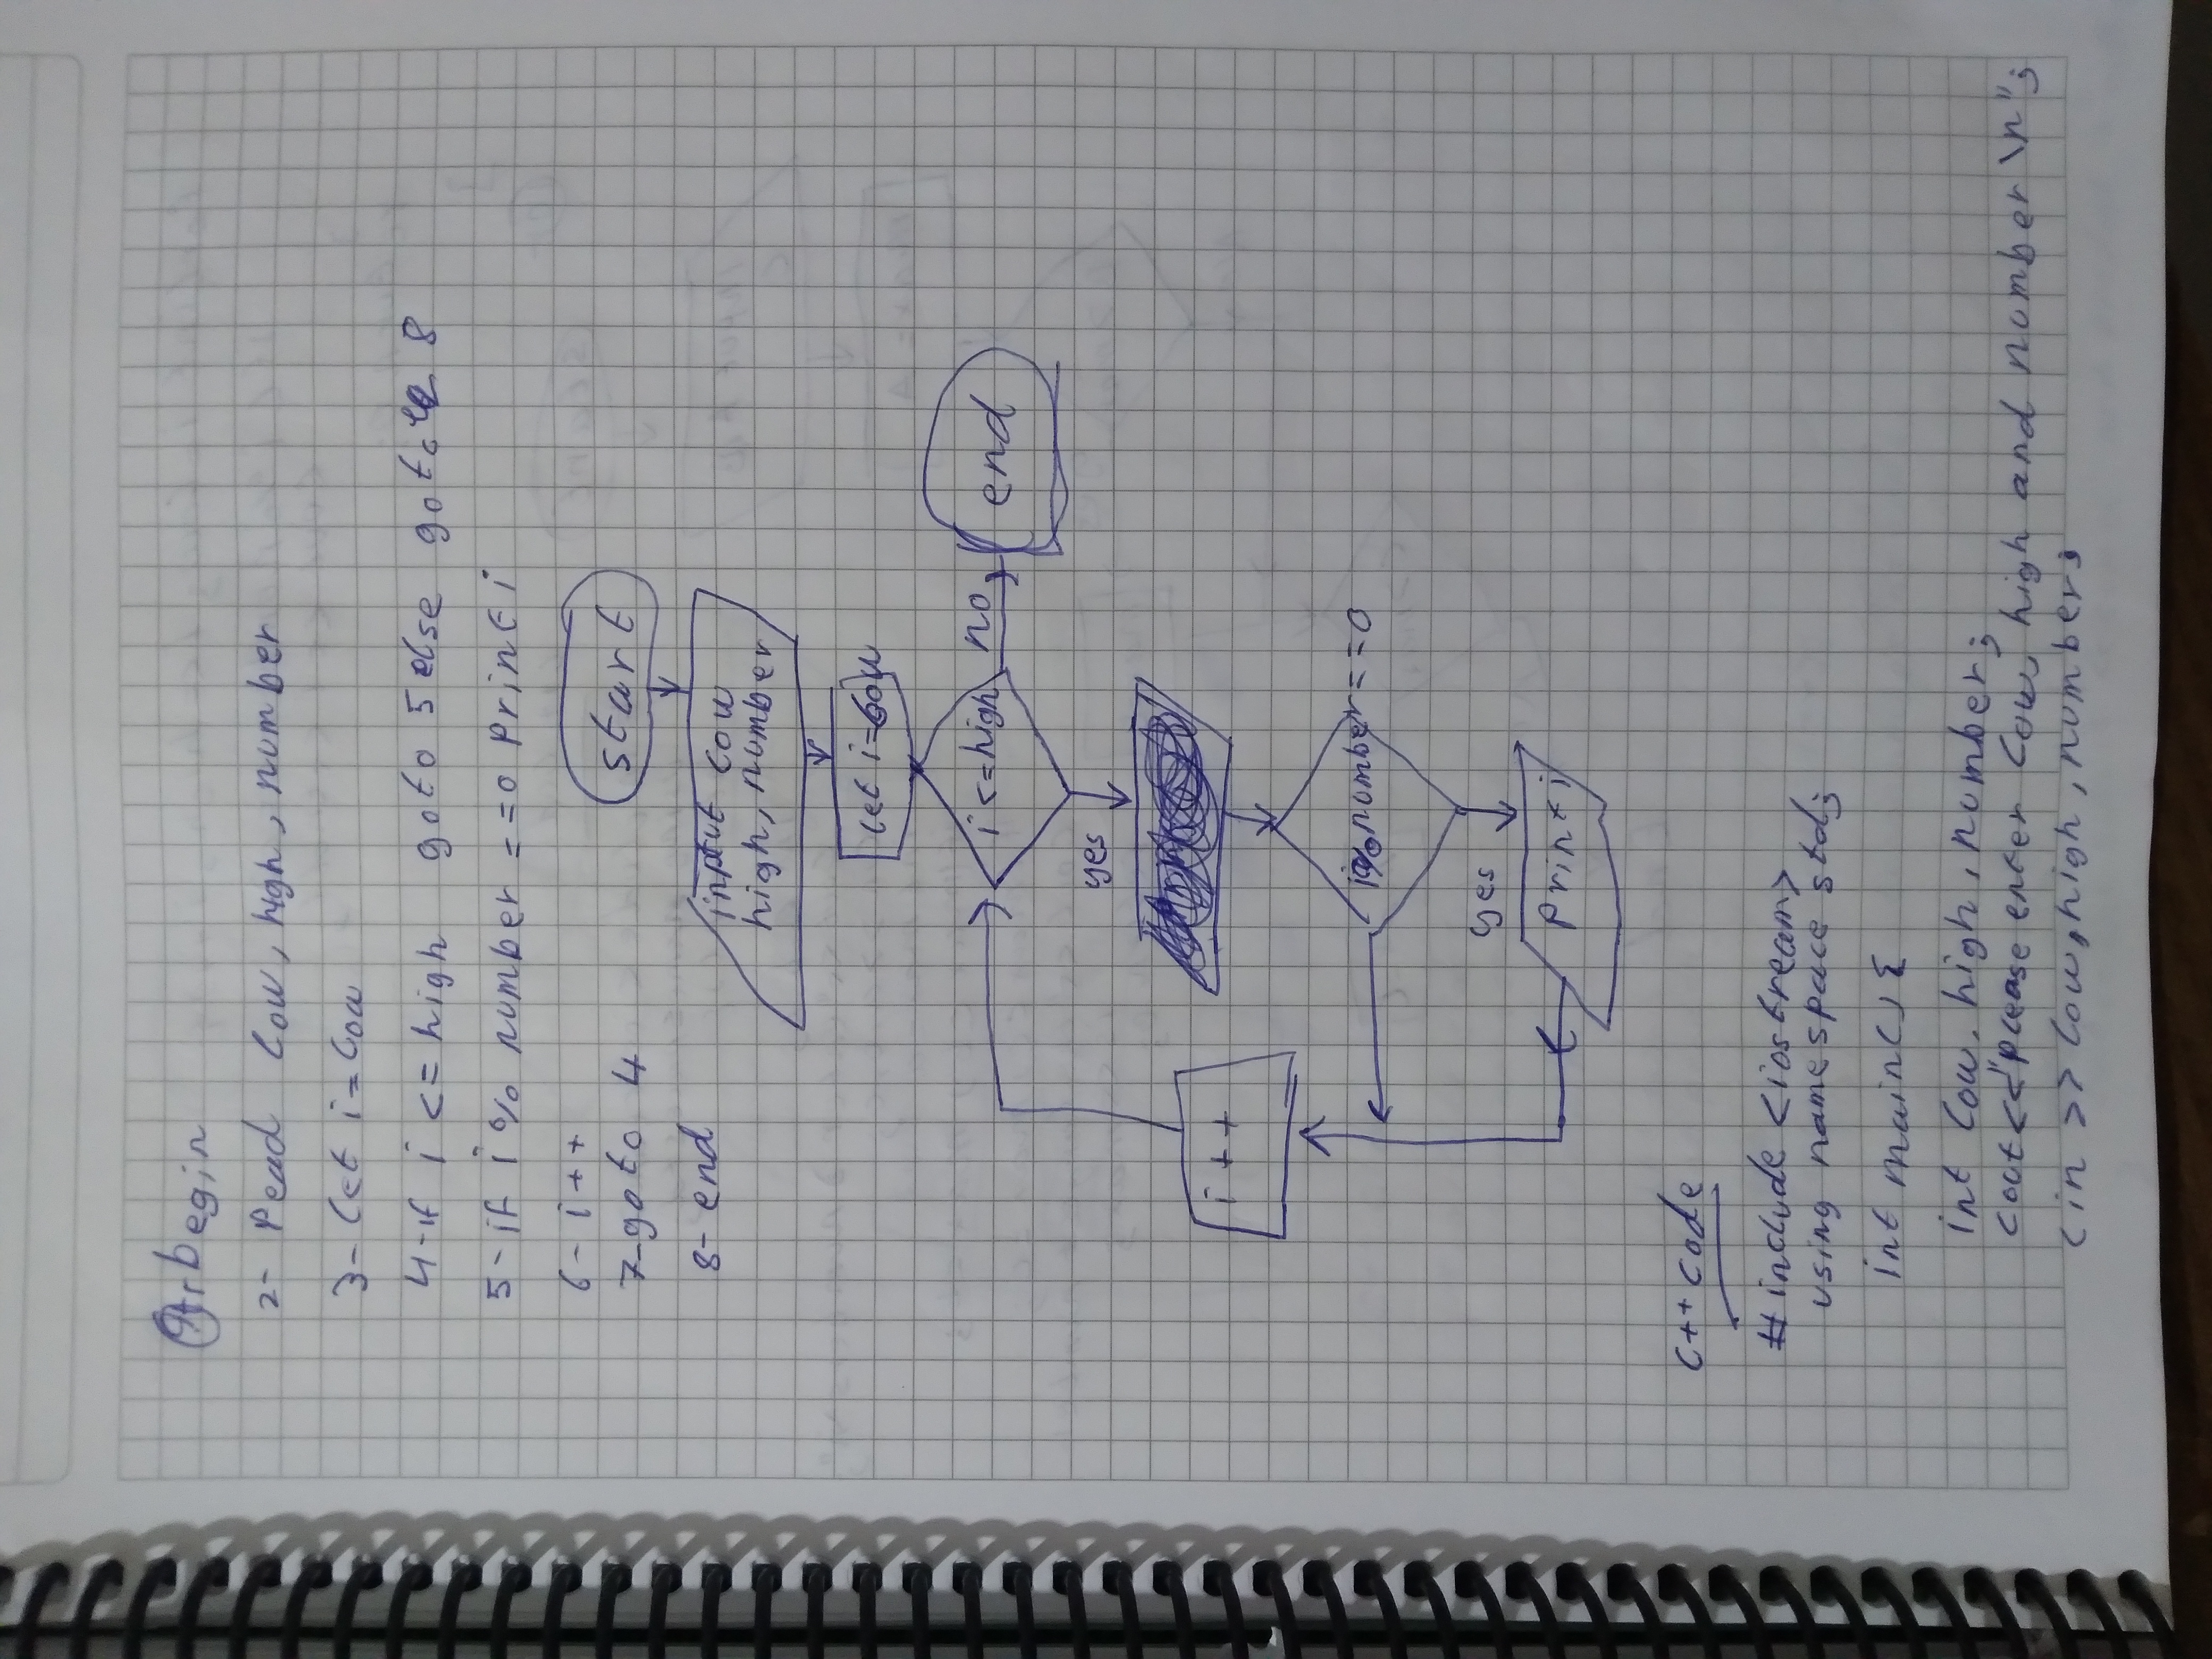 begin
2- Read low, high, number
3- let i = low
4- if i <= high goto 5 else goto 8
5- if i % number == 0 print i
6- i++
7- goto 4
8- end
start
input low
high, number
let i = low
i <= high
no
end
yes
i++
i % number == 0
yes
print i
C++ code
#include <iostream>
using namespace std;
int main() {
int low, high, number;
cout << "please enter low, high and number \n";
cin >> low, high, number;